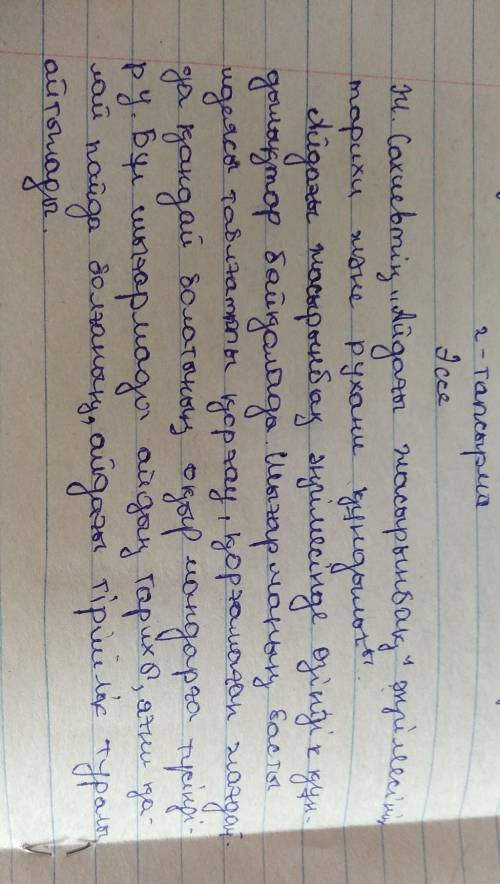 2-тапсырма
Эссе
Ж. Сахиевтің "Айдағы жасырынбақ" әңгімесінің
тарихи және рухани құндылығы.
Айдағы жасырынбақ әңгімесінде өзіндік құн-
дылықтар байқалады. Шығарманың басты
идеясы табиғатты қорғау, қорғамаған жағдай-
да қандай болатының оқырмандарға түсінді-
ру. Бұл шығармада айдың тарихы, яғни қа-
лай пайда болғаның, айдағы тіршілік туралы
айтылады.